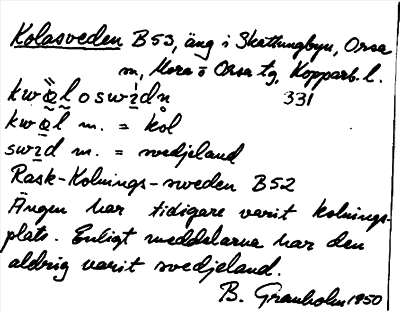 Kolasveden B53, äng i Skattungbyn, Orsa
m, Mora o Orsa tg, Kopparb. l.
kwä̀l o swìdn 331
kwa̤l m. = kol
swid m. = svedjeland
Rask-Kolnings-sveden B52
Ängen har tidigare varit kolnings-
plats. Enligt meddelarna har den
aldrig varit svedjeland.
B. Granholm 1950